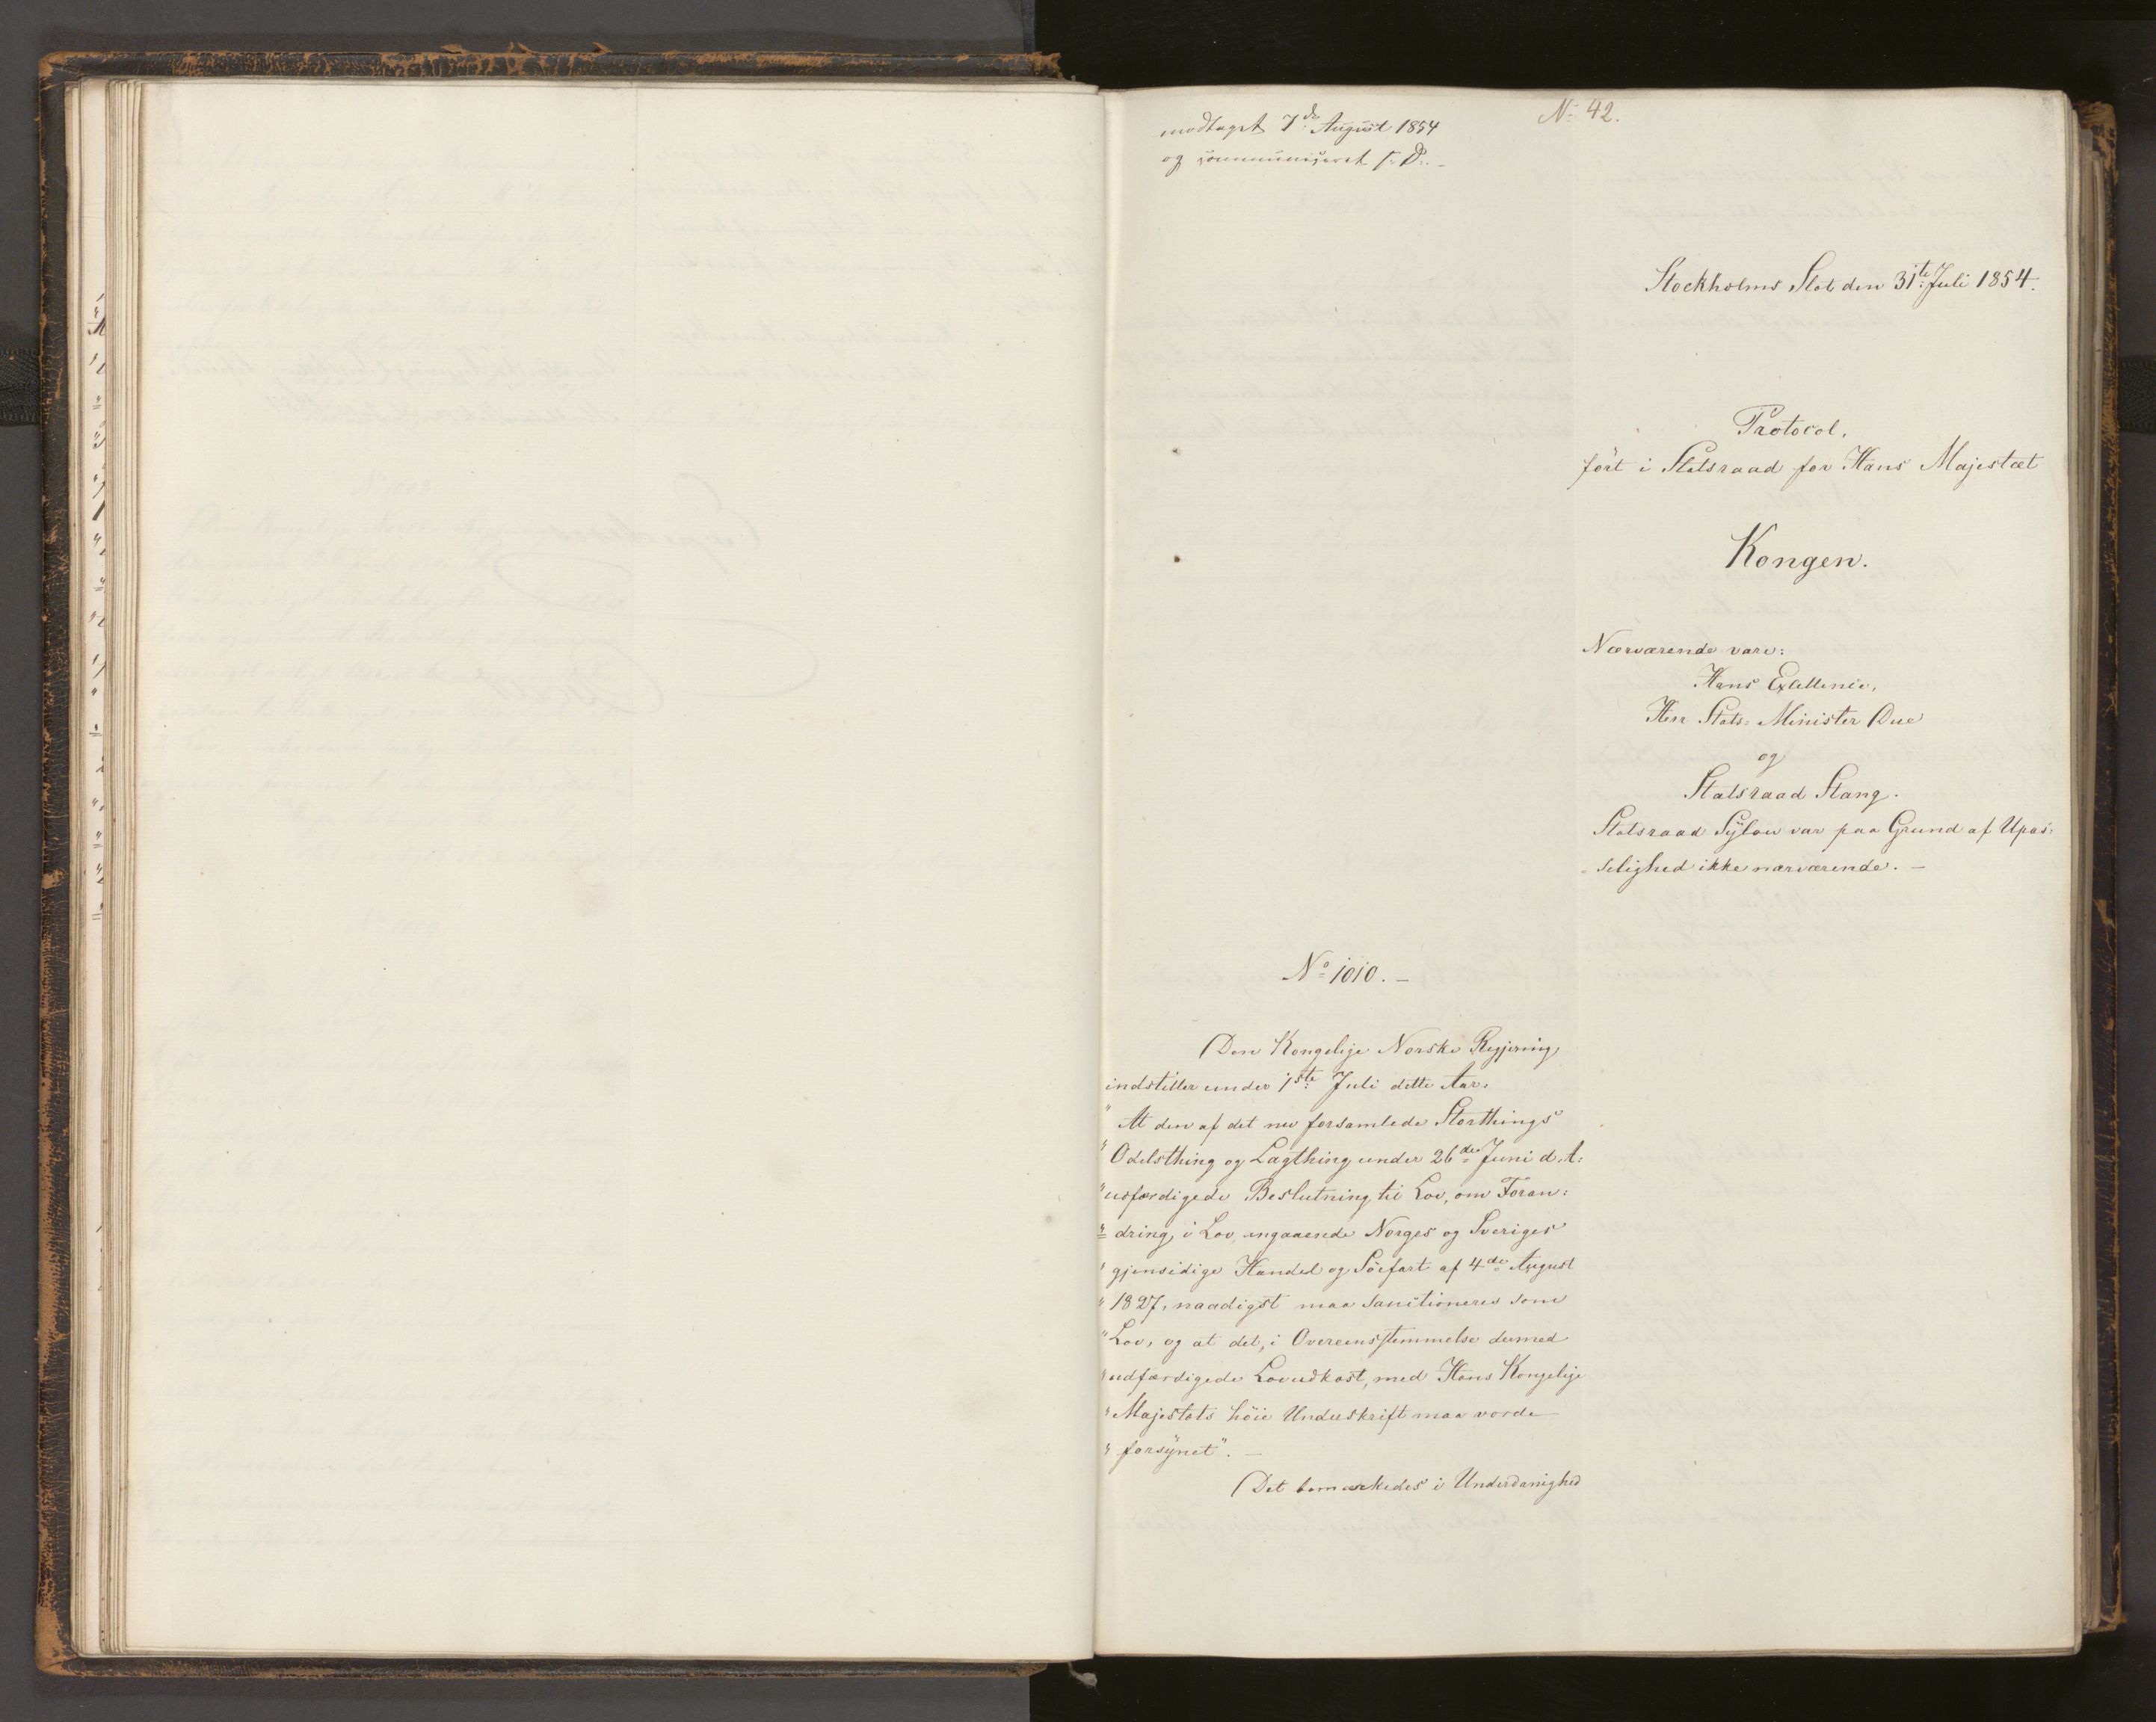 modtaget 7de August 1854
og communiceret s. D. –
No 42.
Stockholms Slot den 31te Juli 1854.
Protocol,
ført i Statsraad for Hans Majestæt
Kongen.
Nærværende vare:
Hans Excellence,
Herr Stats= Minister Due
og
Statsraad Stang.
Statsraad Sylow var paa Grund af Upas=
=selighed ikke nærværende. –
No 1010. –
Den Kongelige Norske Regjering
indstiller under 1ste Juli dette Aar,
" At den af det nu forsamlede Storthings
" Odelsthing og Lagthing under 26de Juni d. A:
" udfærdigede Beslutning til Lov, om Foran=
" dring i Lov, angaaende Norges og Sveriges
" gjensidige Handel og Söefart af 4de August
" 1827, naadigst maa sanctioneres som
" Lov, og at det, i Overeensstemmelse dermed
" udfærdigede Lovudkast, med Hans Kongelige
" Majestæts höie Underskrift maa vorde
" forsynet". –
Det bemærkedes i Underdanighed